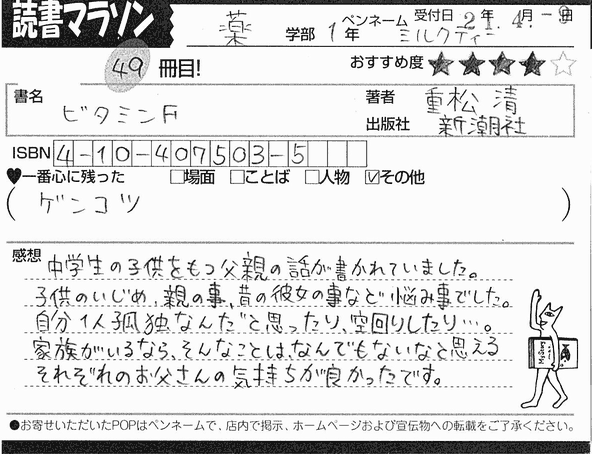 読書マラソン
薬 学部 1年 ペンネーム ミルクティー 受付日 2年.4月-9日
49 冊目! おすすめ度 ★★★★☆
書名 ビタミンF 著者 重松 清
出版社 新潮社
ISBN 4-10-407503-5
♥一番心に残った □場面 □ことば □人物 ☑その他
(ゲンコツ)
感想
中学生の子供をもつ父親の話が書かれていました。
子供のいじめ、親の事、昔の彼女の事など悩み事でした。
自分1人孤独なんだと思ったり、空回りしたり…。
家族がいるなら、そんなことは、なんでもないなと思える
それぞれのお父さんの気持ちが良かったです。
●お寄せいただいたPOPはペンネームで、店内で掲示、ホームページおよび宣伝物への転載をご了承ください。